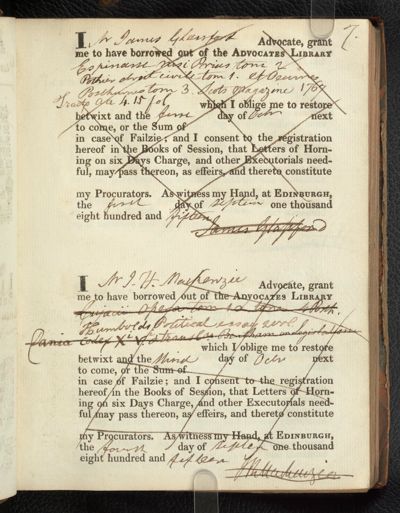 7.
I Mr James Glassford Advocate, grant
me to have borrowed out of the Advocates Library
tom 2
tom 1. et
tom 3. Scots Magazine 1767
which I oblige me to restore
betwixt and the first day of Octr next
to come, or the Sum of
in case of Failzie; and I consent to the registration
hereof in the Books of Session, that Letters of Horn-
ing on six Days Charge, and other Executorials need-
ful, may pass thereon, as effeirs, and thereto constitute
my Procurators. As witness my Hand, at Edinburgh,
the first day of Septem one thousand
eight hundred and fifteen
James Glassford
I Mr J. H. Mackenzie Advocate, grant
me to have borrowed out of the Advocates Library
Opera tom
Humboldts Political essay 2 vols
which I oblige me to restore
betwixt and the third day of Octr next
to come, or the Sum of
in case of Failzie; and I consent to the registration
hereof in the Books of Session, that Letters of Horn-
ing on six Days Charge, and other Executorials need-
ful may pass thereon, as effeirs, and thereto constitute
my Procurators. As witness my Hand, at Edinburgh,
the fourth day of Septem one thousand
eight hundred and fifteen
J H Mackenzie